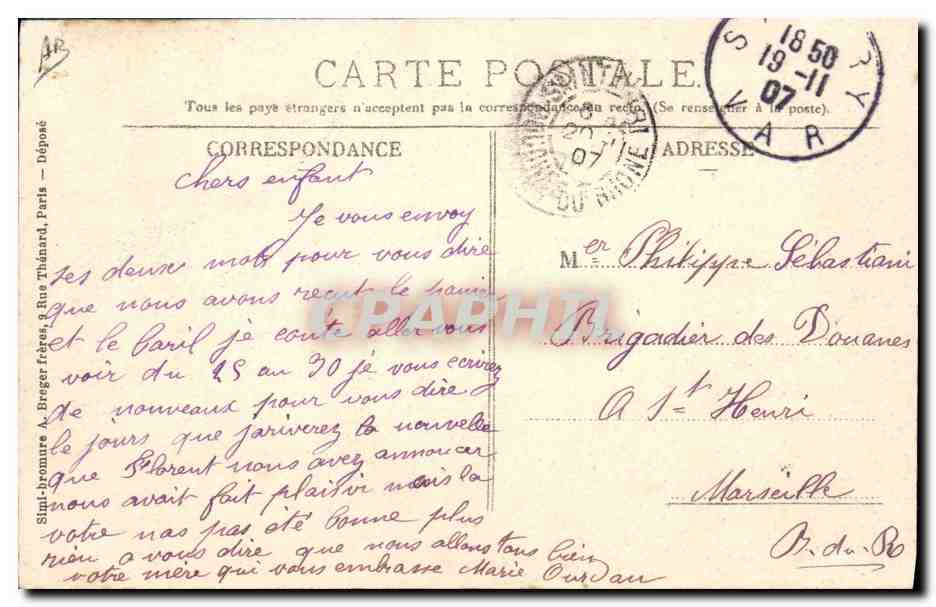 AB
CARTE POSTALE.
Tous les pays étrangers n'acceptent pas la correspondance au recto (Se renseigner à la poste).
CORRESPONDANCE
ADRESSE
18 50
19 -11
07
VAR
07
DU RHONE
chers enfant
Je vous envoy
ses deux mots pour vous dire
que nous avons recut le panier
et le baril je conte aller vous
voir du 25 au 30 je vous ecrirez
de nouveaux pour vous dire
le jours que jariverez la nouvelle
que Florent nous avez annoncer
nous avait fait plaisir mais la
votre nas pas été bonne plus
rien a vous dire que nous allons tous bien
votre mère qui vous embrasse Marie Ourdan
Mer Philippe Sébastiani
Brigadier des Douanes
A St Henri
Marseille
B-du-R
Simi-bromure A. Breger frères, 9 Rue Thénard, Paris — Déposé
CPAPHIL